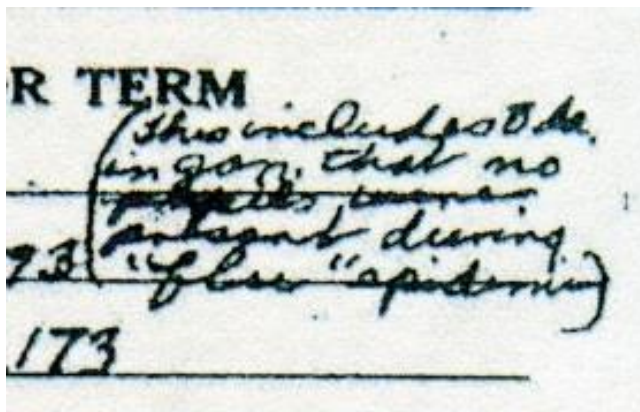 R TERM
(This includes 8 da.
in Jan. that no
pupils were
present during
93 "flu" epidemic)
173